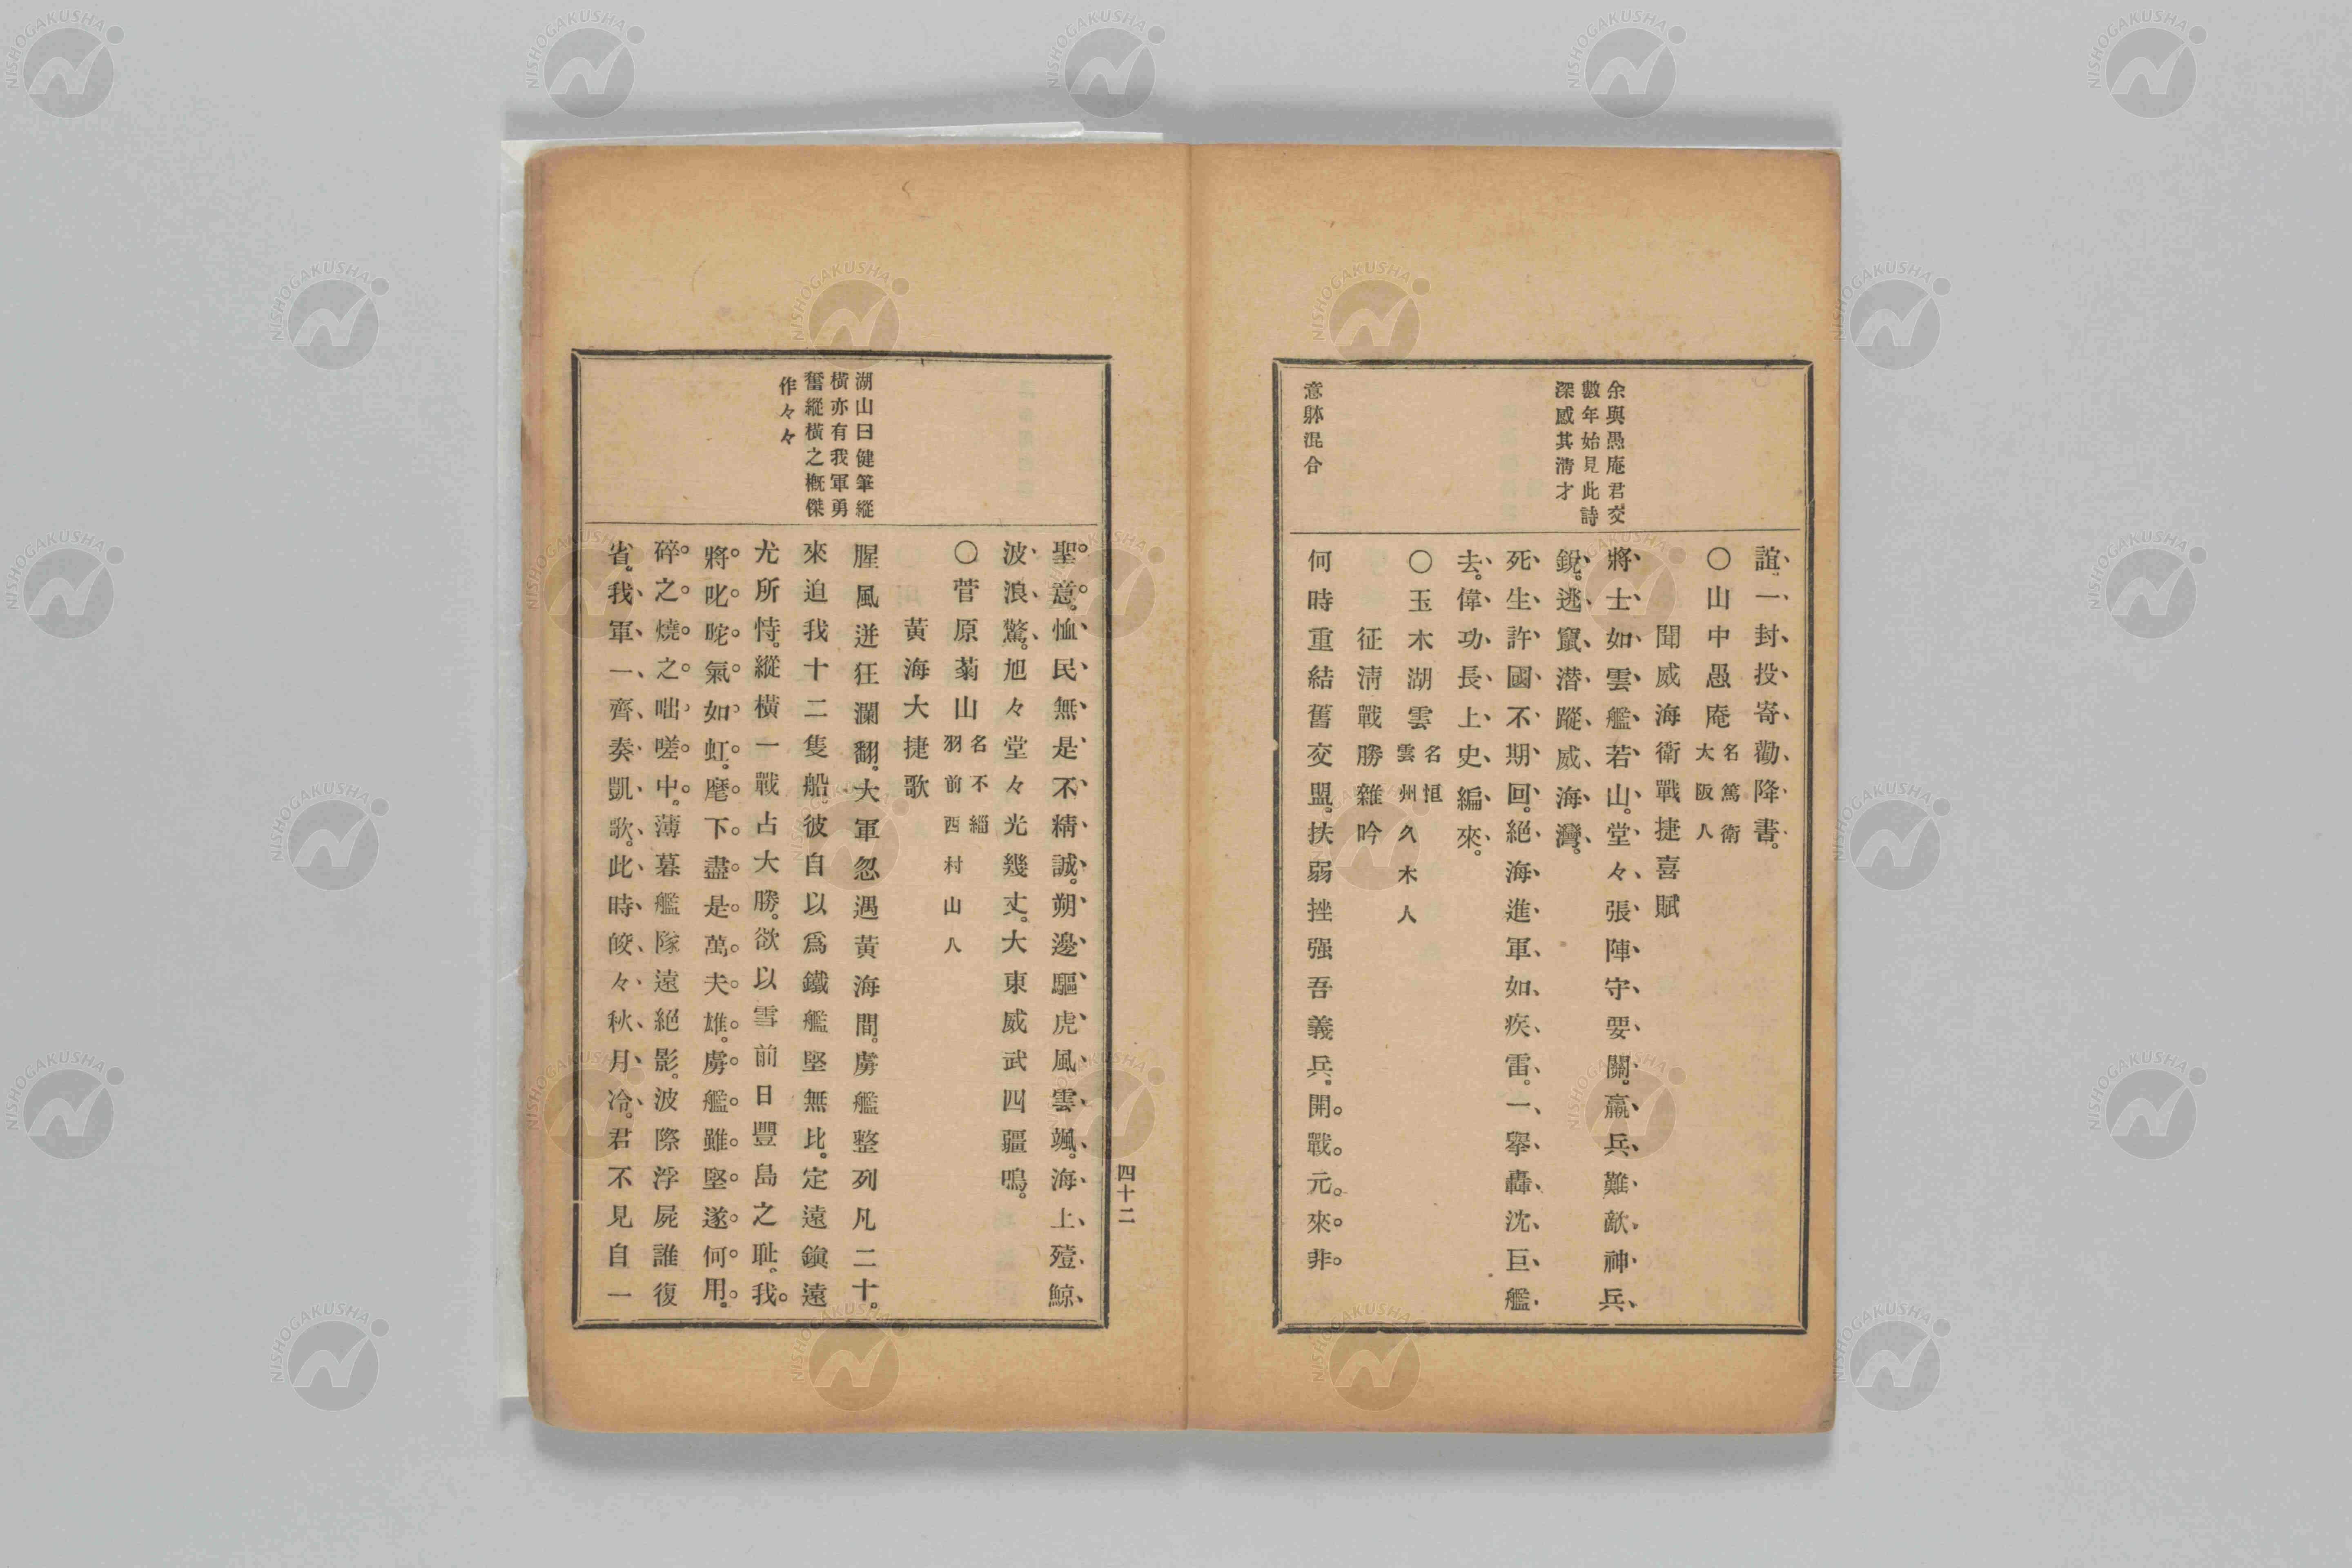 余與愚庵君交
數年始見此詩
深感其淸才
意躰混合
誼一封投寄勸降書。
〇山中愚庵 名篤衛 大阪人
聞威海衛戰捷喜賦
將士如雲艦若山。堂々張陣守要關。羸兵難敵神兵
銳。逃竄潜蹤威海灣。
死生許國不期回。絕海進軍如疾雷。一擧轟沈巨艦
去。偉功長上史編來。
〇玉木湖雲 名恒 雲州久木人
征淸戰勝雜吟
何時重結舊交盟。扶弱挫强吾義兵。開戰元來非
四十二
湖山曰健筆縱
橫亦有我軍勇
奮縱橫之槪傑
作々々
聖意。恤民無是不精誠。朔邊驅虎風雲颯。海上殪鯨
波浪驚。旭々堂々光幾丈。大東威武四疆鳴。
〇菅原菊山 名不緇 羽前西村山人
黃海大捷歌
腥風迸狂瀾翻。大軍忽遇黃海間。虜艦整列凡二十。
來迫我十二隻船。彼自以爲鐵艦堅無比。定遠鎭遠
尤所恃。縱橫一戰占大勝。欲以雪前日豐島之耻。我
將叱咤氣如虹。麾下盡是萬夫雄。虜艦雖堅遂何用。
碎之燒之咄嗟中。薄暮艦隊遠絕影。波際浮屍誰復
省。我軍一齊奏凱歌。此時皎々秋月冷。君不見自一